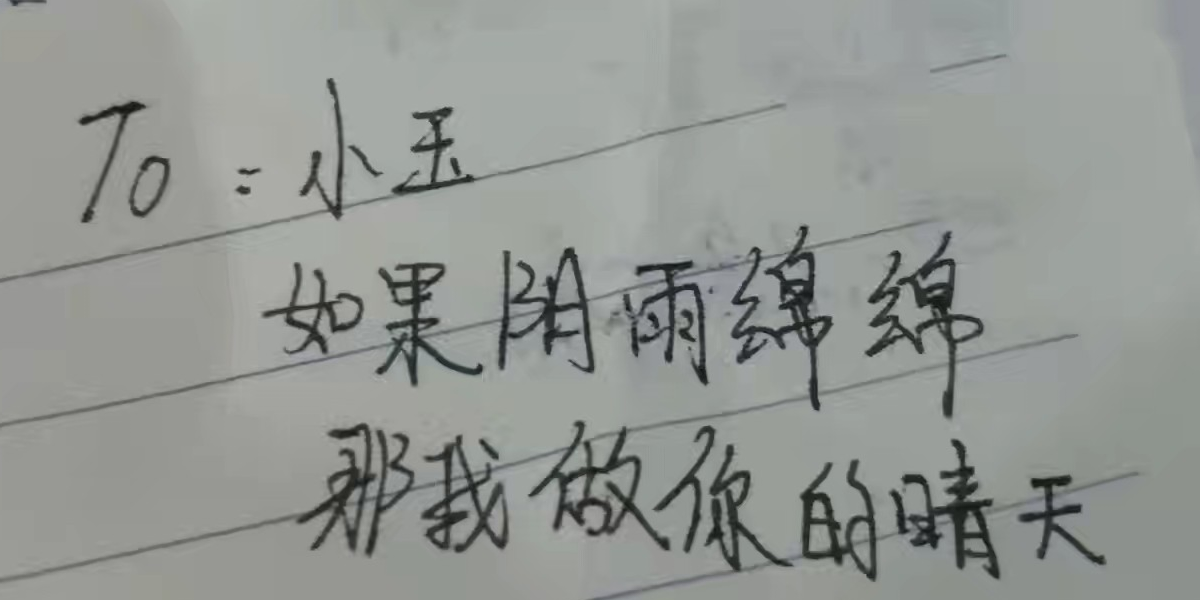 To：小玉
如果阴雨绵绵
那我做你的晴天